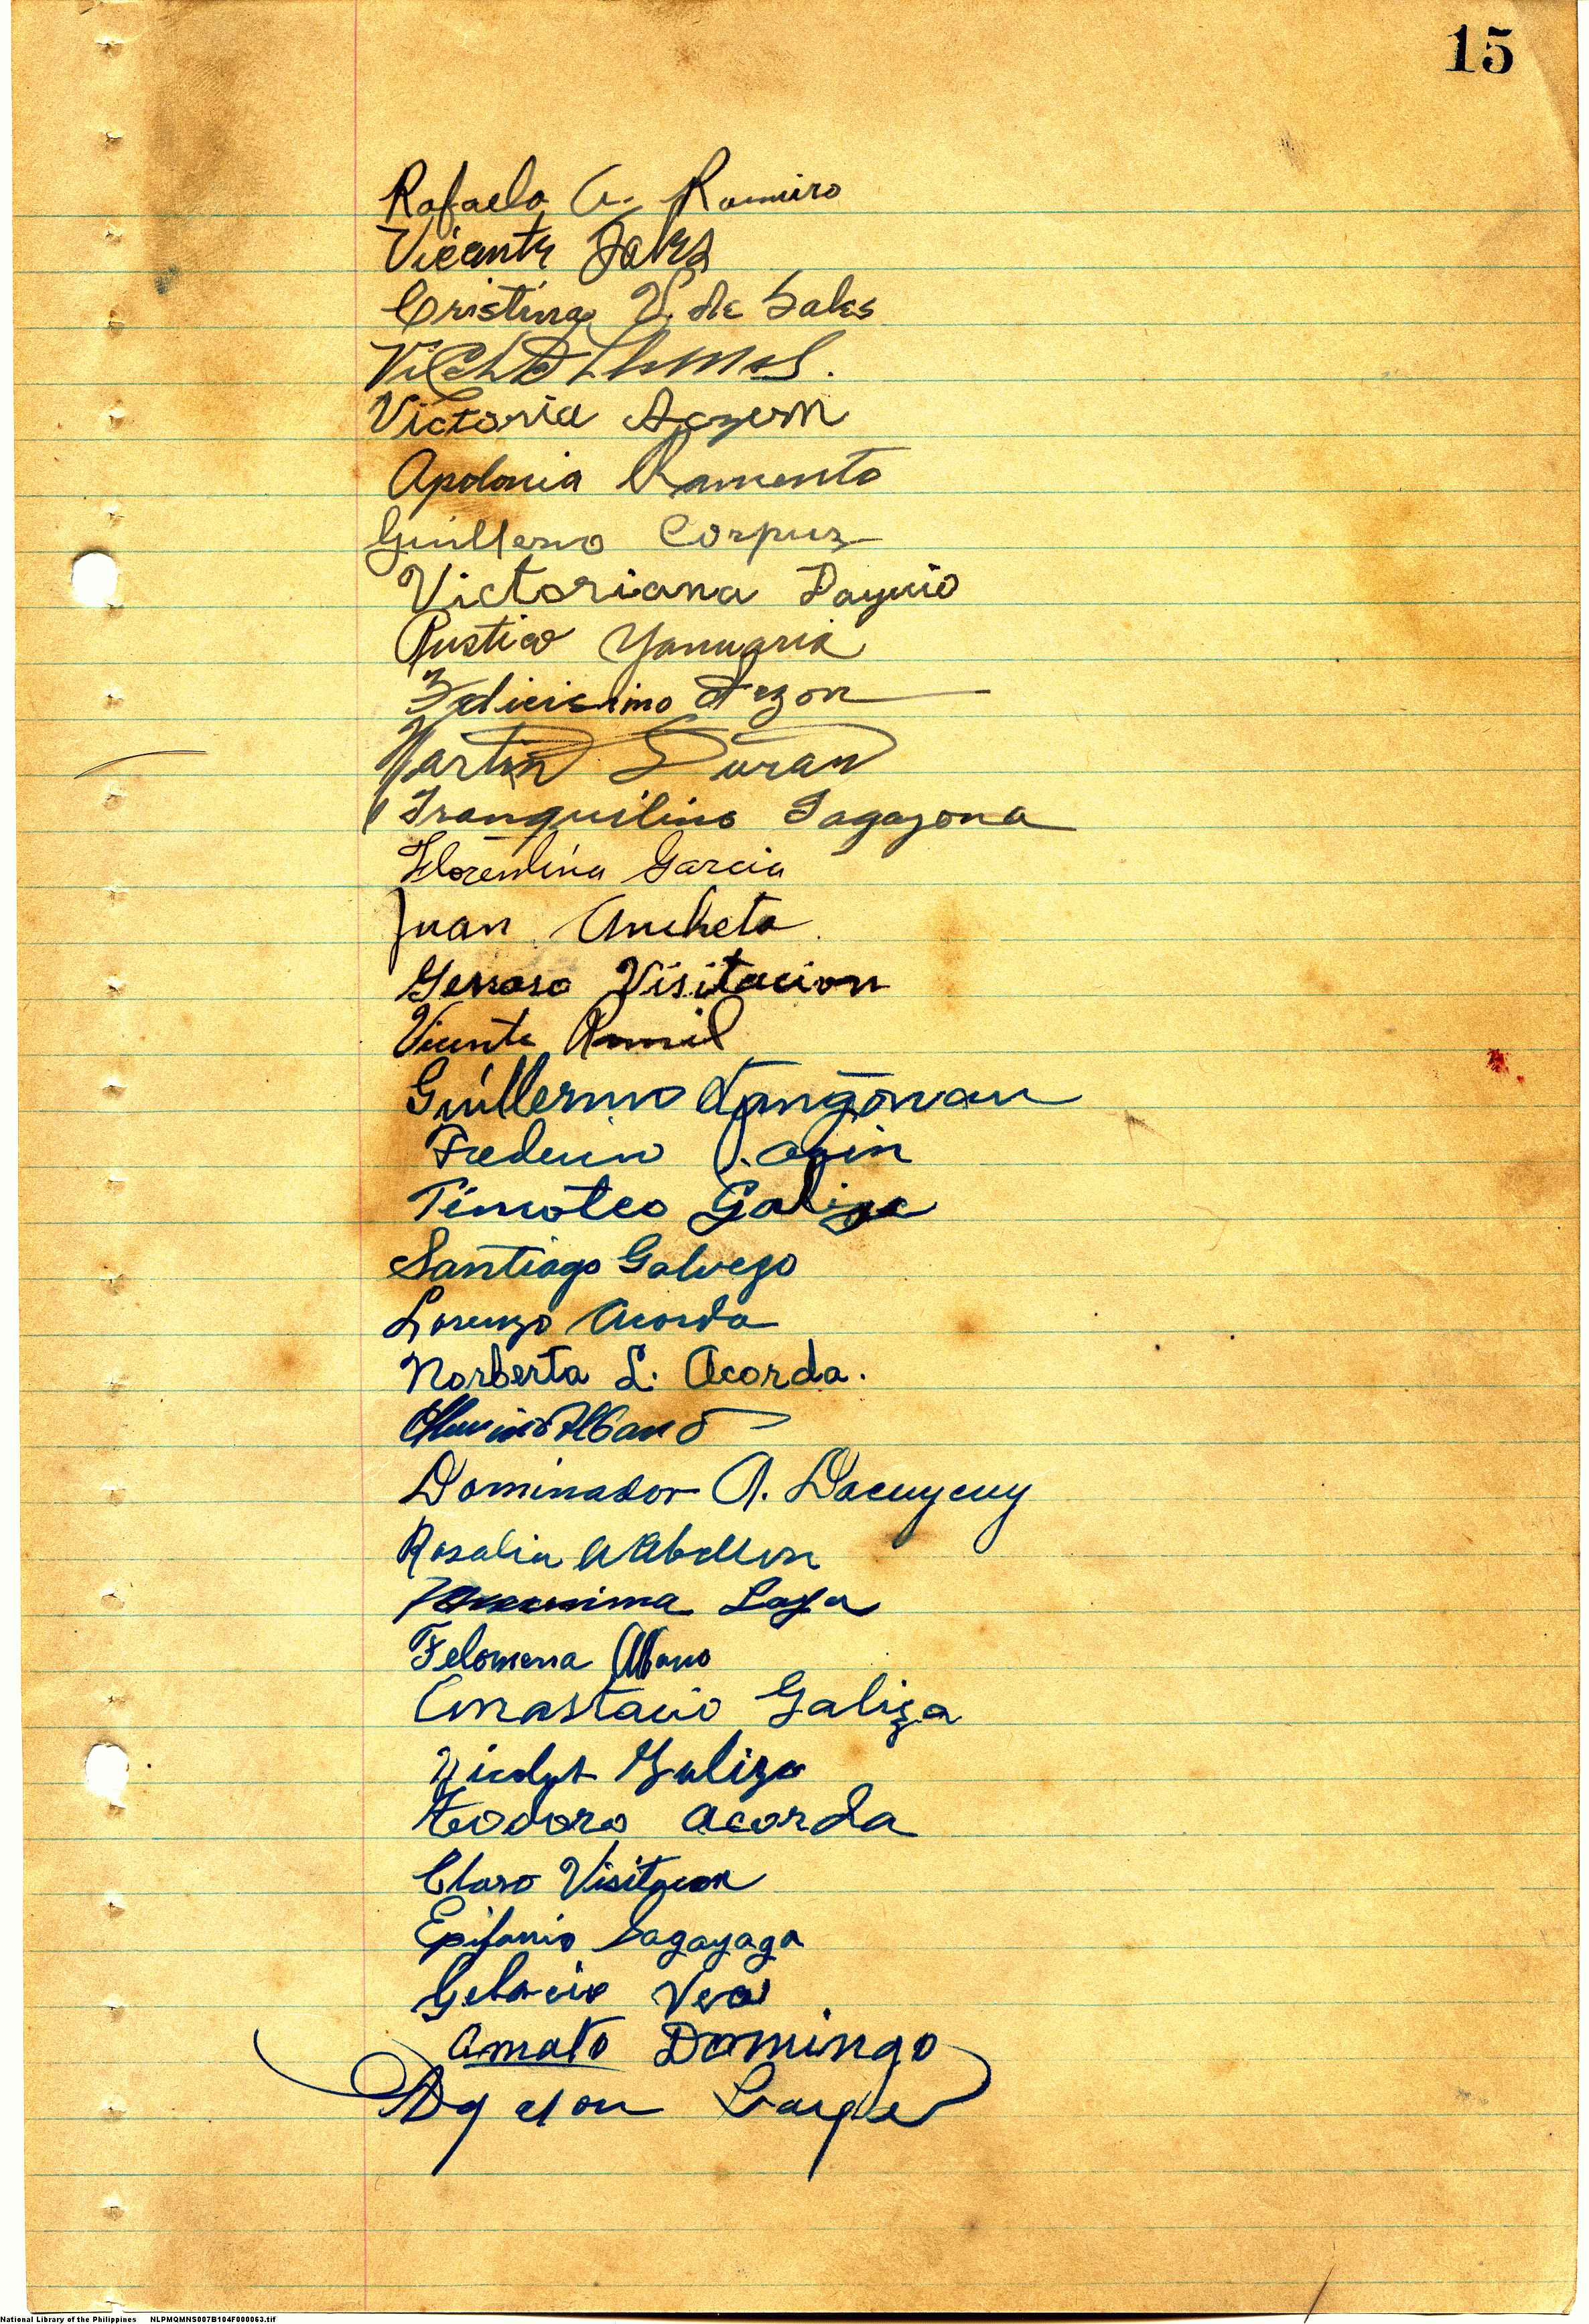 15
Rafaela A. Ramiro
Vicente Sales
Cristina V. de Sales
Victoria
Apolonia Ramento
Guillermo Corpuz
Victoriana Daguio
Rustico Yanuaria
Felicisimo
Martin Duran
Tranquilino Tagayona
Florentina Garcia
Juan Ancheta
Gervaso Visitacion
Vicente Ramil
Guillermo
Federico
Timoteo Galiza
Santiago Galvezo
Lorenzo Acorda
Norberta L. Acorda.
Albano
Dominador A. Dacuycuy
Rosalia A Abellon
Laya
Felomena Albano
Anastacio Galiza
Galiza
Teodoro Acorda
Claro Visitacion
Epifanio Sagayaga
Gelacio Vera
Amato Domingo
National Library of the Philippines NLPMQMNS007B104F000063.tif